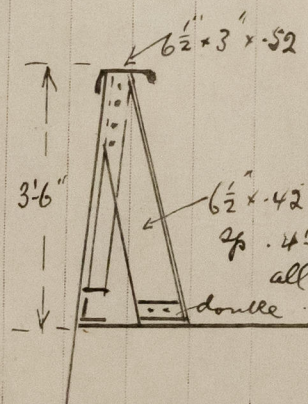 6½" × 3" × .52
3'-6"
6½" × .42
sp. .4
all
double